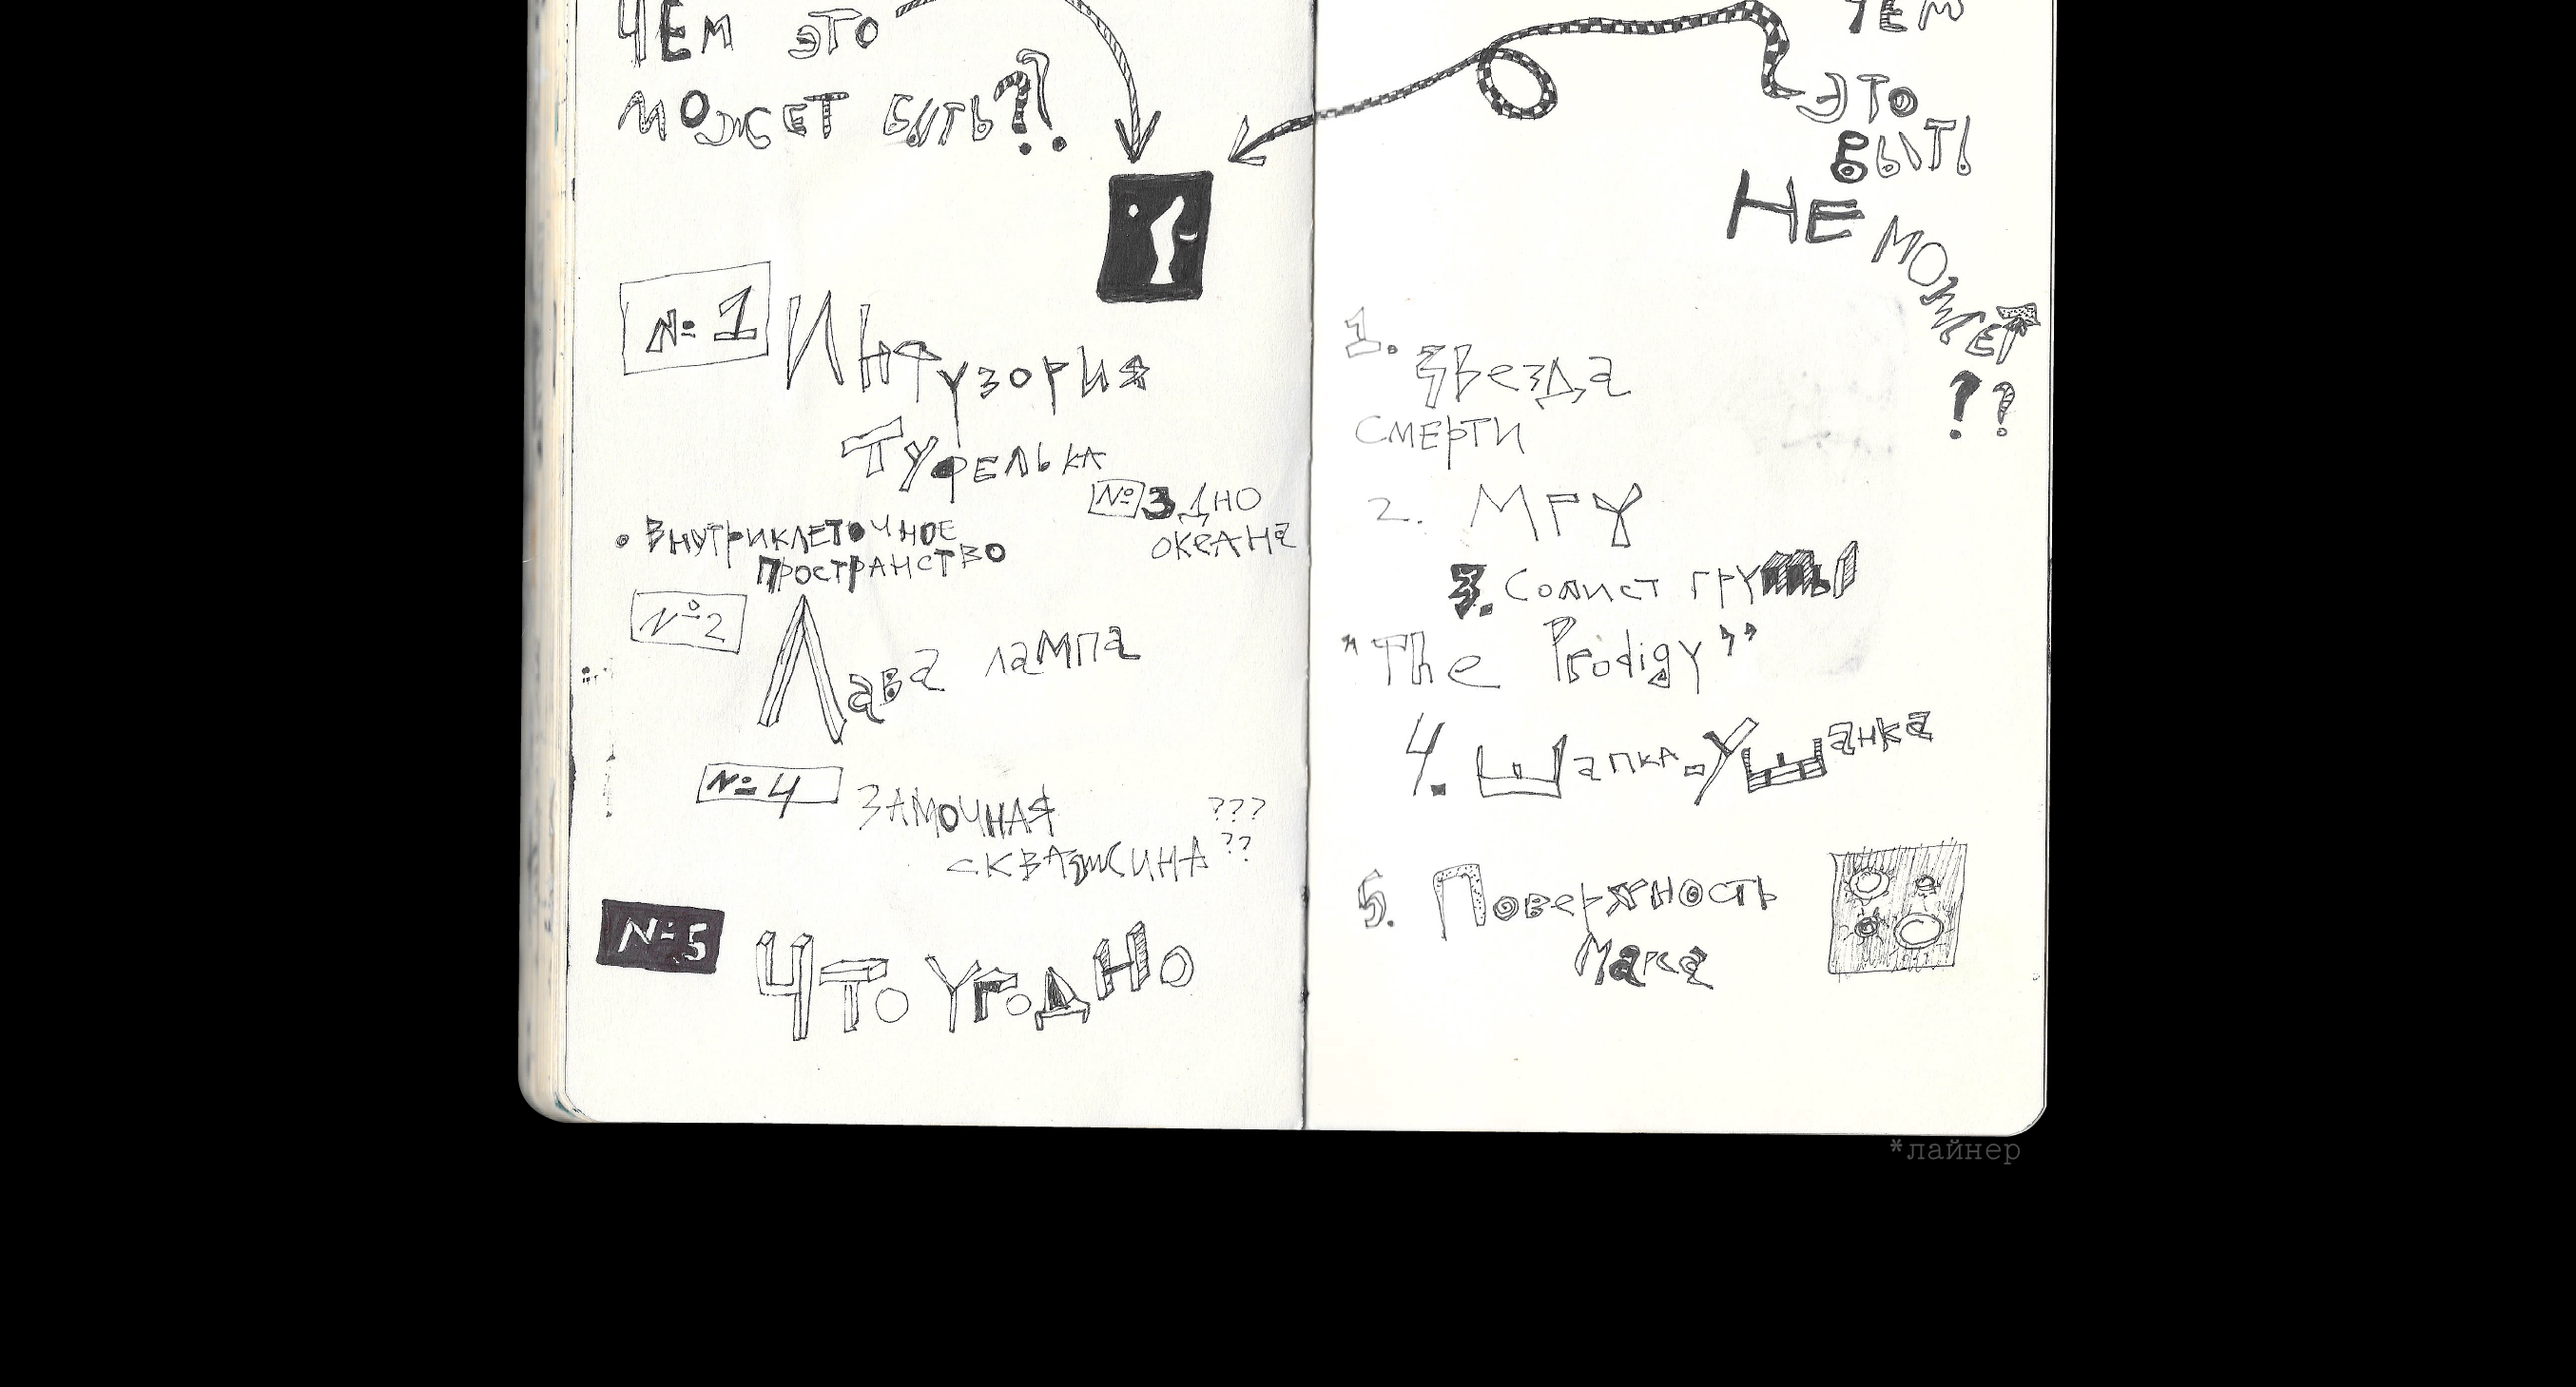 ЧЕМ ЭТО
МОЖЕТ БЫТЬ??
№1 Инфузория
Туфелька
• ВНУТРИКЛЕТОЧНОЕ
ПРОСТРАНСТВО
№3 ДНО
ОКЕАНа
№2 Лава лампа
№4 ЗАМОЧНАЯ
СКВАЖИНА
???
??
№5 Что угодно
ЧЕМ
ЭТО
БЫТЬ
НЕ МОЖЕТ
??
1. Звезда
СМЕРТИ
2. МГУ
3. Солист группы
"The Prodigy"
4. Шапка-Ушанка
5. Поверхность
Марса
*лайнер